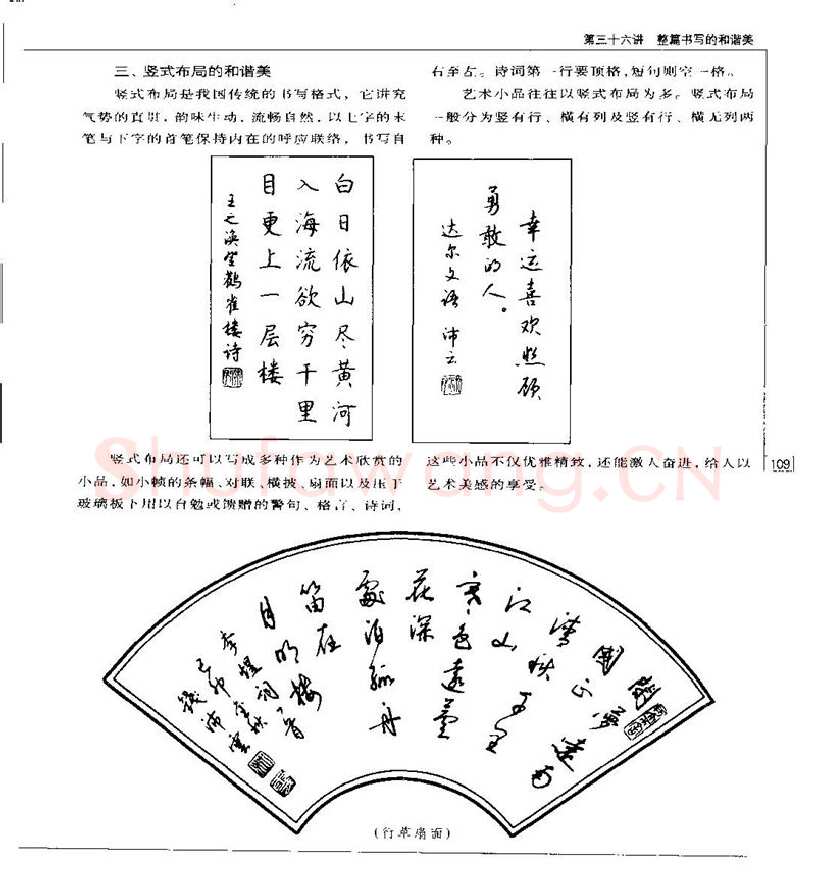 第三十六讲 整篇书写的和谐美
三、竖式布局的和谐美
竖式布局是我国传统的书写格式，它讲究
气势的贯串，韵味生动，流畅自然，以上字的末
笔与下字的首笔保持内在的呼应联络，书写自
右至左。诗词第一行要顶格，短句则空一格。
艺术小品往往以竖式布局为多。竖式布局
一般分为竖有行、横有列及竖有行、横无列两
种。
白日依山尽黄河
入海流欲穷千里
目更上一层楼
王之涣登鹳雀楼诗
幸运喜欢照顾
勇敢的人。
达尔文语 沛云
竖式布局还可以写成多种作为艺术欣赏的
小品，如小帧的条幅、对联、横披、扇面以及压于
玻璃板下用以自勉或馈赠的警句、格言、诗词，
这些小品不仅优雅精致，还能激人奋进，给人以
艺术美感的享受。
109
Shufawang.CN
国正
清秋千里
江山
寒色遠芦
花深
處泊孤舟
笛在
月明楼
李煜词一首
己卯金秋
钱沛雲
(行草扇面)